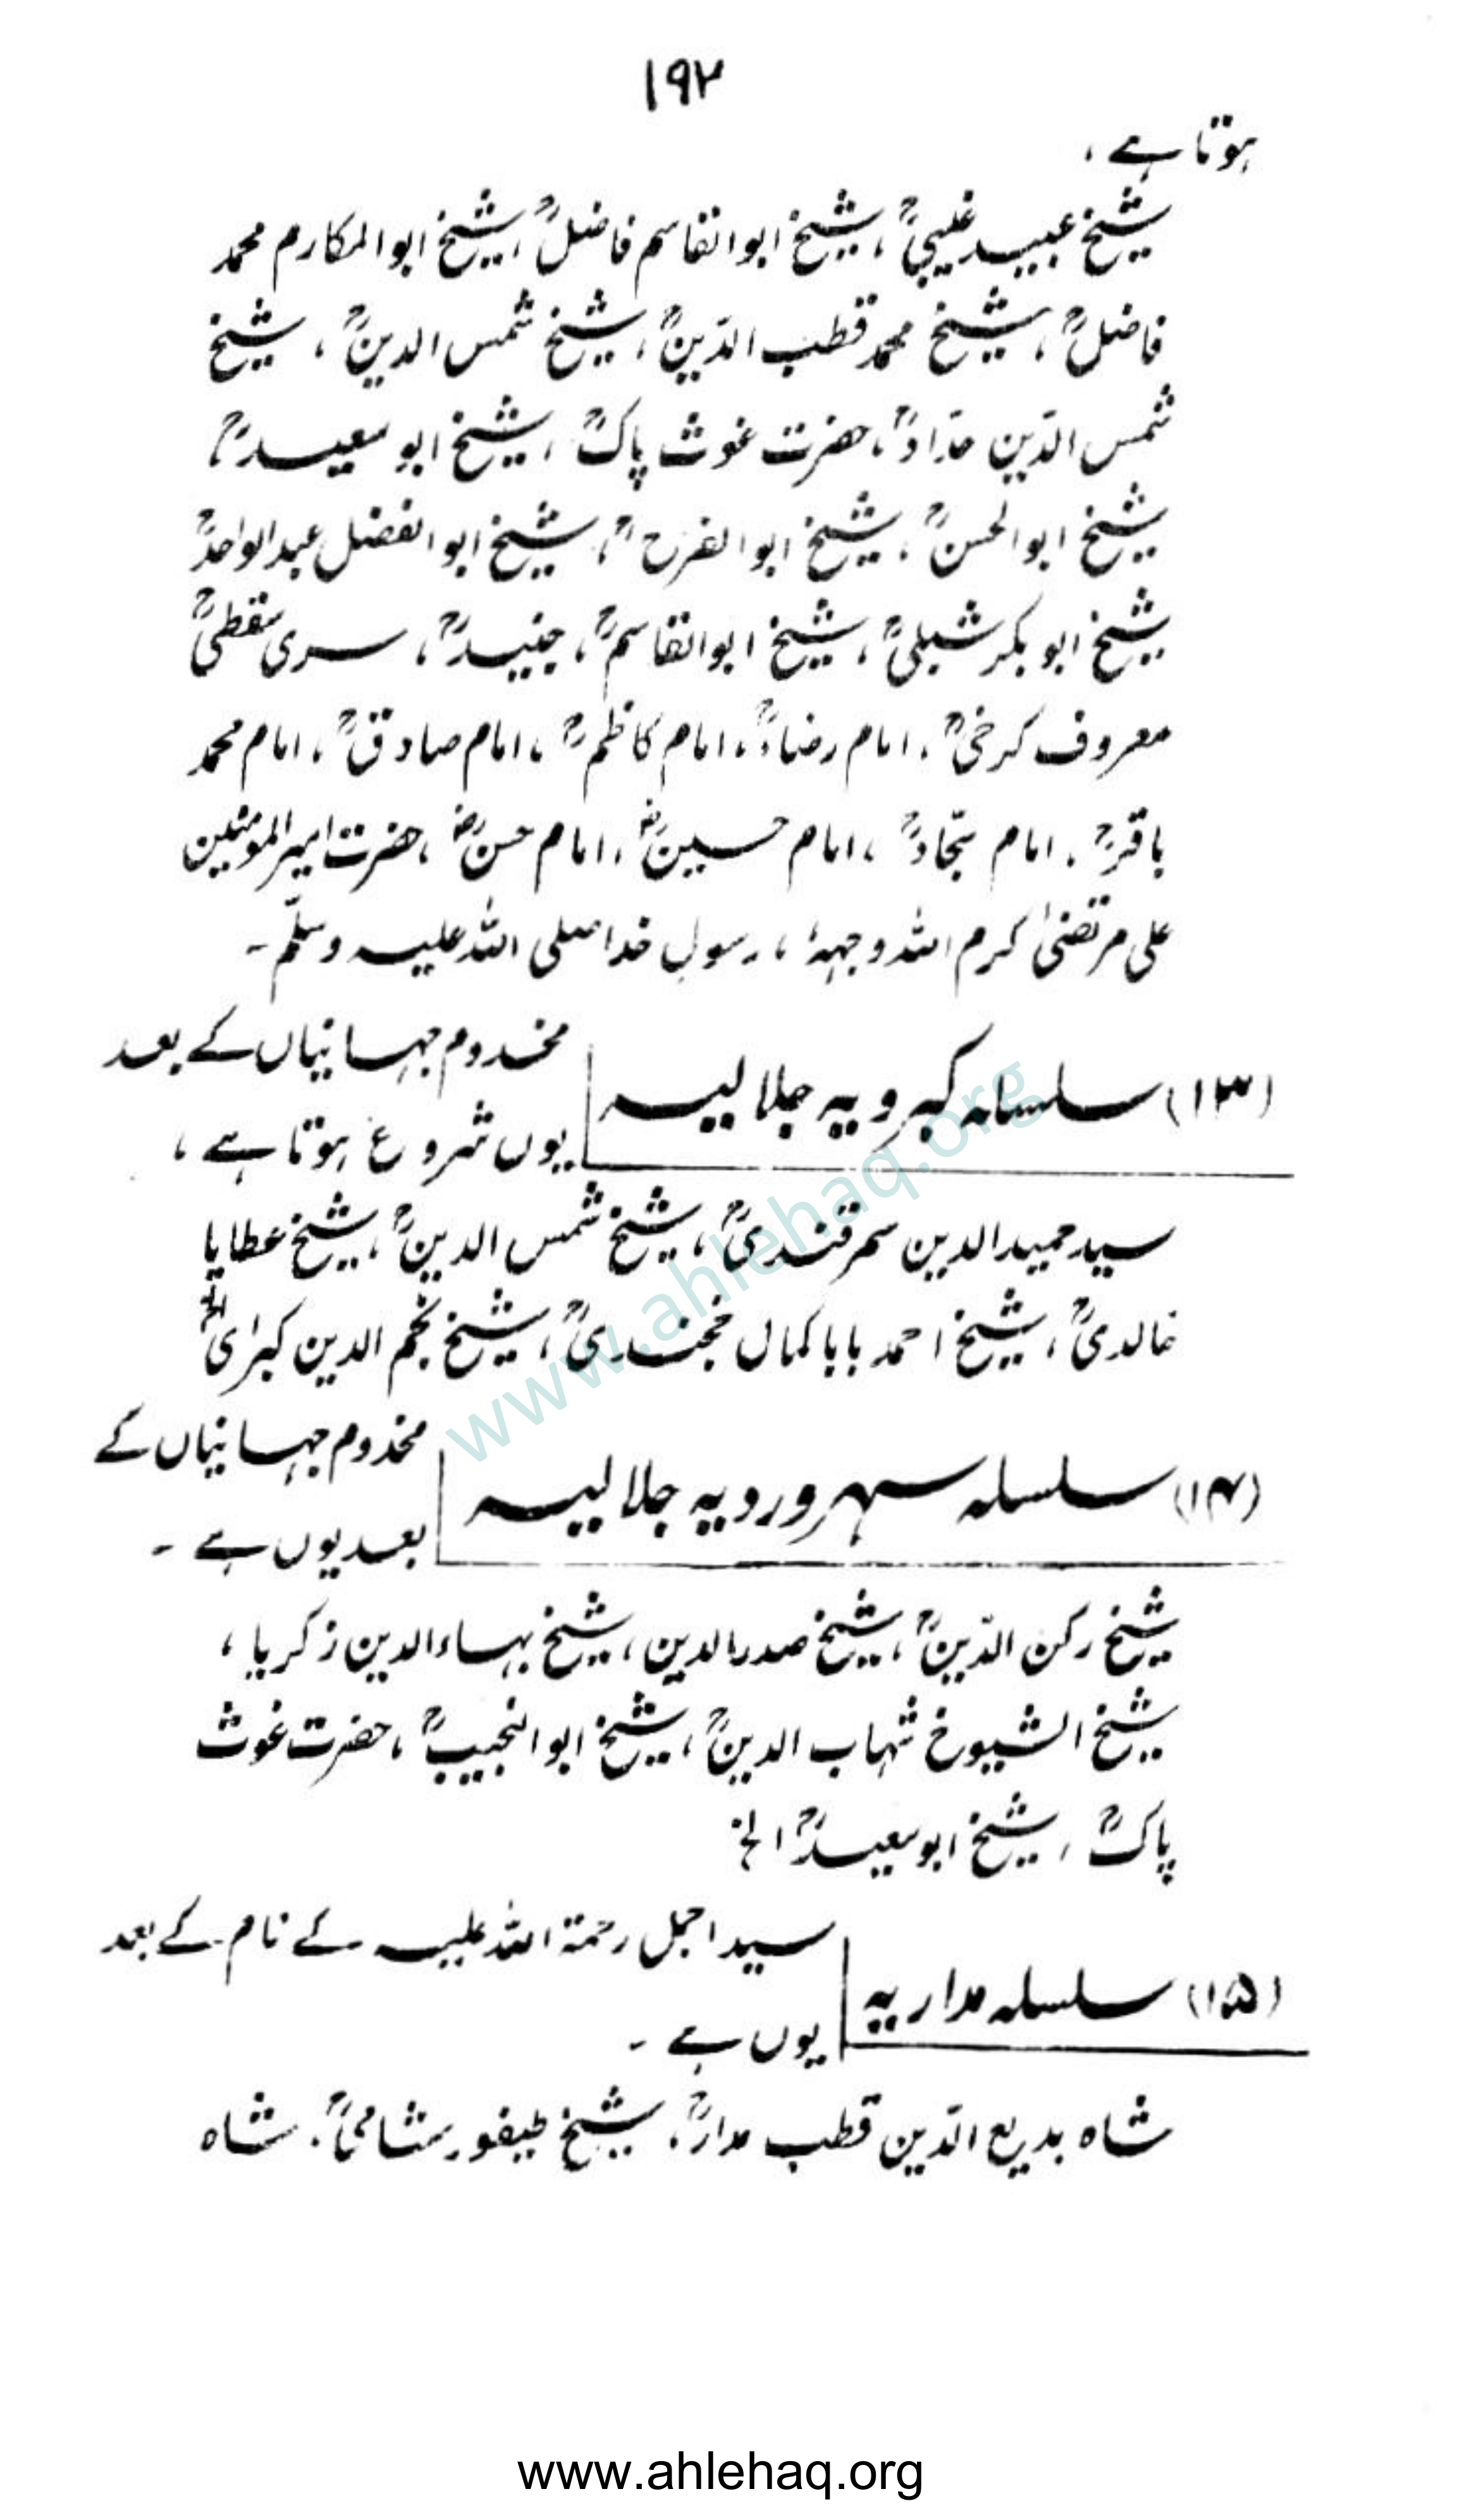 ۱۹۲
ہوتا ہے ،
شیخ عبید غیبیؒ ، شیخ ابوالقاسم فاضلؒ ، شیخ ابوالمکارم محمد
فاضلؒ ، شیخ محمد قطب الدّینؒ ، شیخ شمس الدینؒ ، شیخ
شمس الدّین حدّادؒ ، حضرت غوث پاکؒ ، شیخ ابو سعیدؒ ،
شیخ ابوالحسنؒ ، شیخ ابوالفرحؒ ، شیخ ابوالفضل عبدالواحدؒ
شیخ ابوبکر شبلیؒ ، شیخ ابوالقاسمؒ ، جنیدؒ ، سری سقطیؒ
معروف کرخیؒ ، امام رضاءؒ ، امام کاظمؒ ، امام صادقؒ ، امام محمد
باقرؒ ، امام سجّادؒ ، امام حسینؓ ، امام حسنؓ ، حضرت امیرالمومنین
علی مرتضیٰ کرم اللہ وجہہٗ ، رسول خدا صلی اللہ علیہ وسلّم ۔
(۱۳) سلسلہ کبرویہ جلالیہ
مخدوم جہانیاں کے بعد
یوں شروع ہوتا ہے ،
سید حمیدالدین سمرقندیؒ ، شیخ شمس الدینؒ ، شیخ عطایا
خالدیؒ ، شیخ احمد بابا کمال خجندیؒ ، شیخ نجم الدین کبرٰیؒ الخ
(۱۴) سلسلہ سہروردیہ جلالیہ
مخدوم جہانیاں کے
بعد یوں ہے ۔
شیخ رکن الدّینؒ ، شیخ صدرالدین ، شیخ بہاءالدین زکریا ،
شیخ الشیوخ شہاب الدینؒ ، شیخ ابوالنجیبؒ ، حضرت غوث
پاکؒ ، شیخ ابوسعیدؒ الخ
(۱۵) سلسلہ مداریہ
سید اجمل رحمۃ اللہ علیہ کے نام کے بعد
یوں ہے ۔
شاہ بدیع الدّین قطب مدارؒ ، شیخ طیفور شامیؒ ، شاہ
www.ahlehaq.org
www.ahlehaq.org